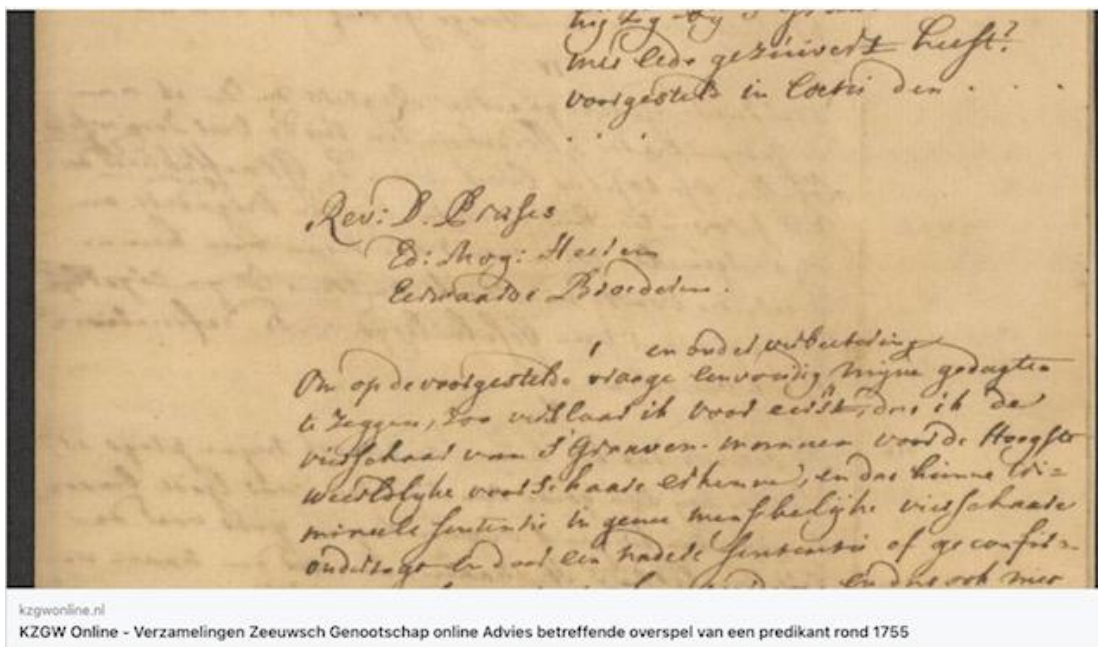 met Eede gezuivert heeft?
voorgestelt in Coetu den . . .
. . . .
Rev: D. Præses
Ed: Mog: Heeren
Eerwaarde Broederen.
en onder verbeetering
Om op de voorgestelde vraage eenvoudig mijne gedagten
te zeggen, zoo verklaar ik voor eerst, dat ik de
vierschaar van 's Graven-mannen voor de Hoogste
Weereldlyke vierschaare erkenne, en dat hunne cri=
mineele sententie in geene menschelyke vierschaare
onderzogt en door een nadere sententie of geconfir=
en dus ook niet
kzgwonline.nl
KZGW Online - Verzamelingen Zeeuwsch Genootschap online Advies betreffende overspel van een predikant rond 1755